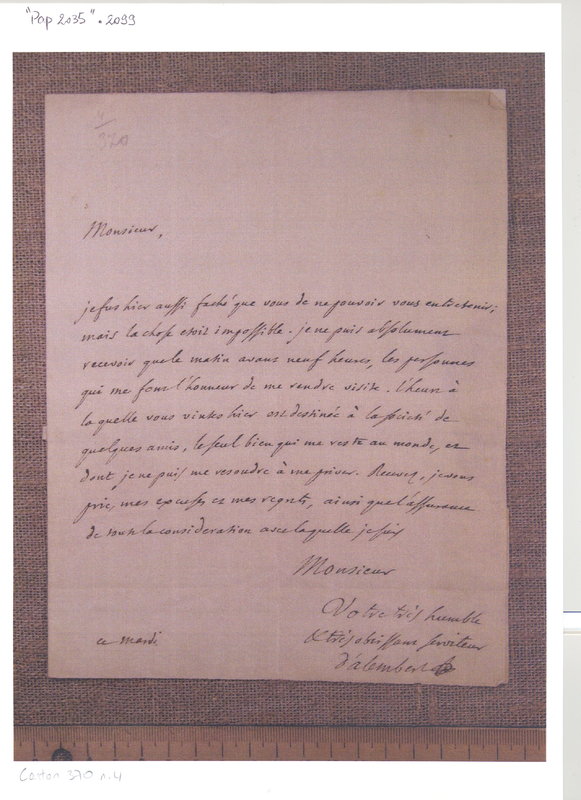 "Pap 2035" . 2099
4/370
Monsieur,
je fus hier aussi faché que vous de ne pouvoir vous entretenir;
mais la chose etoit impossible. je ne puis absolument
recevoir que le matin avant neuf heures, les personnes
qui me font l'honneur de me rendre visite. l'heure à
la quelle vous vintes hier est destinée à la société de
quelques amis, le seul bien qui me reste au monde, et
dont je ne puis me resoudre à me priver. Recevez, je vous
prie, mes excuses et mes regrets, ainsi que l'assurance
de toute la consideration avec laquelle je suis
Monsieur
Votre très humble
& très obeissant serviteur
ce mardi
d'alembert
Carton 370 n. 4